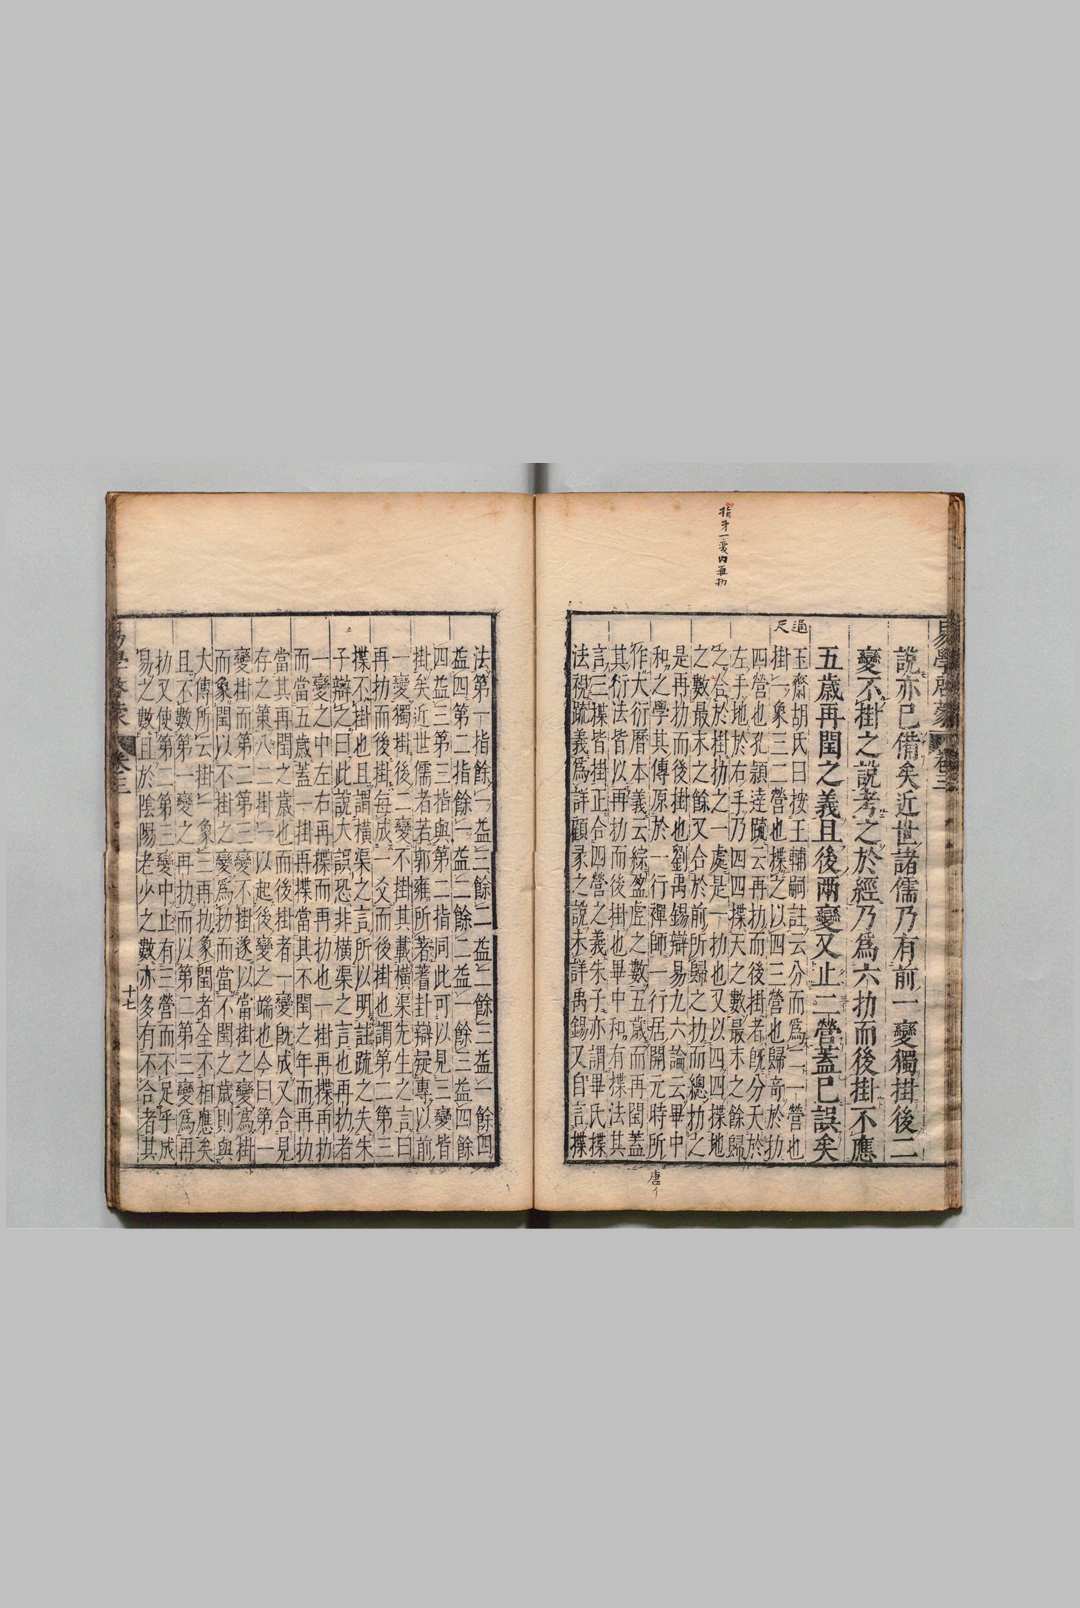 易學啓蒙 卷三
說亦已備矣近世諸儒乃有前一變獨掛後二
變不掛之說考之於經乃爲六扐而後掛不應
五歲再閏之義且後兩變又止三營蓋已誤矣
玉齋胡氏曰按王輔嗣註云分而爲二一營也
掛一象三二營也揲之以四三營也歸奇於扐
四營也孔穎達䟽云再扐而後掛者旣分天於
左手地於右手乃四四揲天之數最末之餘歸
之合於掛扐之一處是一扐也又以四四揲地
之數最末之餘又合於前所歸之扐而總扐之
是再扐而後掛也劉禹錫辯易九六論云畢中
和之學其傳原於一行禪師一行居開元時所
作大衍曆本義云綜盈虛之數五歲而再閏蓋
其衍法皆以再扐而後掛也畢中和有揲法其
言三揲皆掛正合四營之義朱子亦謂畢氏揲
法視䟽義爲詳顧彔之說未詳禹錫又自言揲
指才一變內再扐
通
尺
唐人
法第一指餘一益三餘二益二餘三益一餘四
益四第二指餘一益二餘二益一餘三益四餘
四益三第三指與第二指同此可以見三變皆
掛矣近世儒者若郭雍所著蓍卦辯疑專以前
一變獨掛後二變不掛其載橫渠先生之言曰
再扐而後掛每成一爻而後掛也謂第二第三
揲不掛也且謂橫渠之言所以明註䟽之失朱
子辯之曰此說大誤恐非橫渠之言也再扐者
一變之中左右再揲而再扐也一掛再揲再扐
而當五歲蓋一掛再揲當其不閏之年而再扐
當其再閏之歲也而後掛者一變旣成又合見
存之策分二掛一以起後變之端也今曰第一
變掛而第二第三變不掛遂以當掛之變爲掛
而象閏以不掛之變爲扐而當不閏之歲則與
大傳所云掛一象三再扐象閏者全不相應矣
且不數第一變之再扐而以第二第三變爲再
扐又使第二第三變中止有三營而不足乎成
易之數且於陰陽老少之數亦多有不合者其
易學啓蒙 卷三
十七